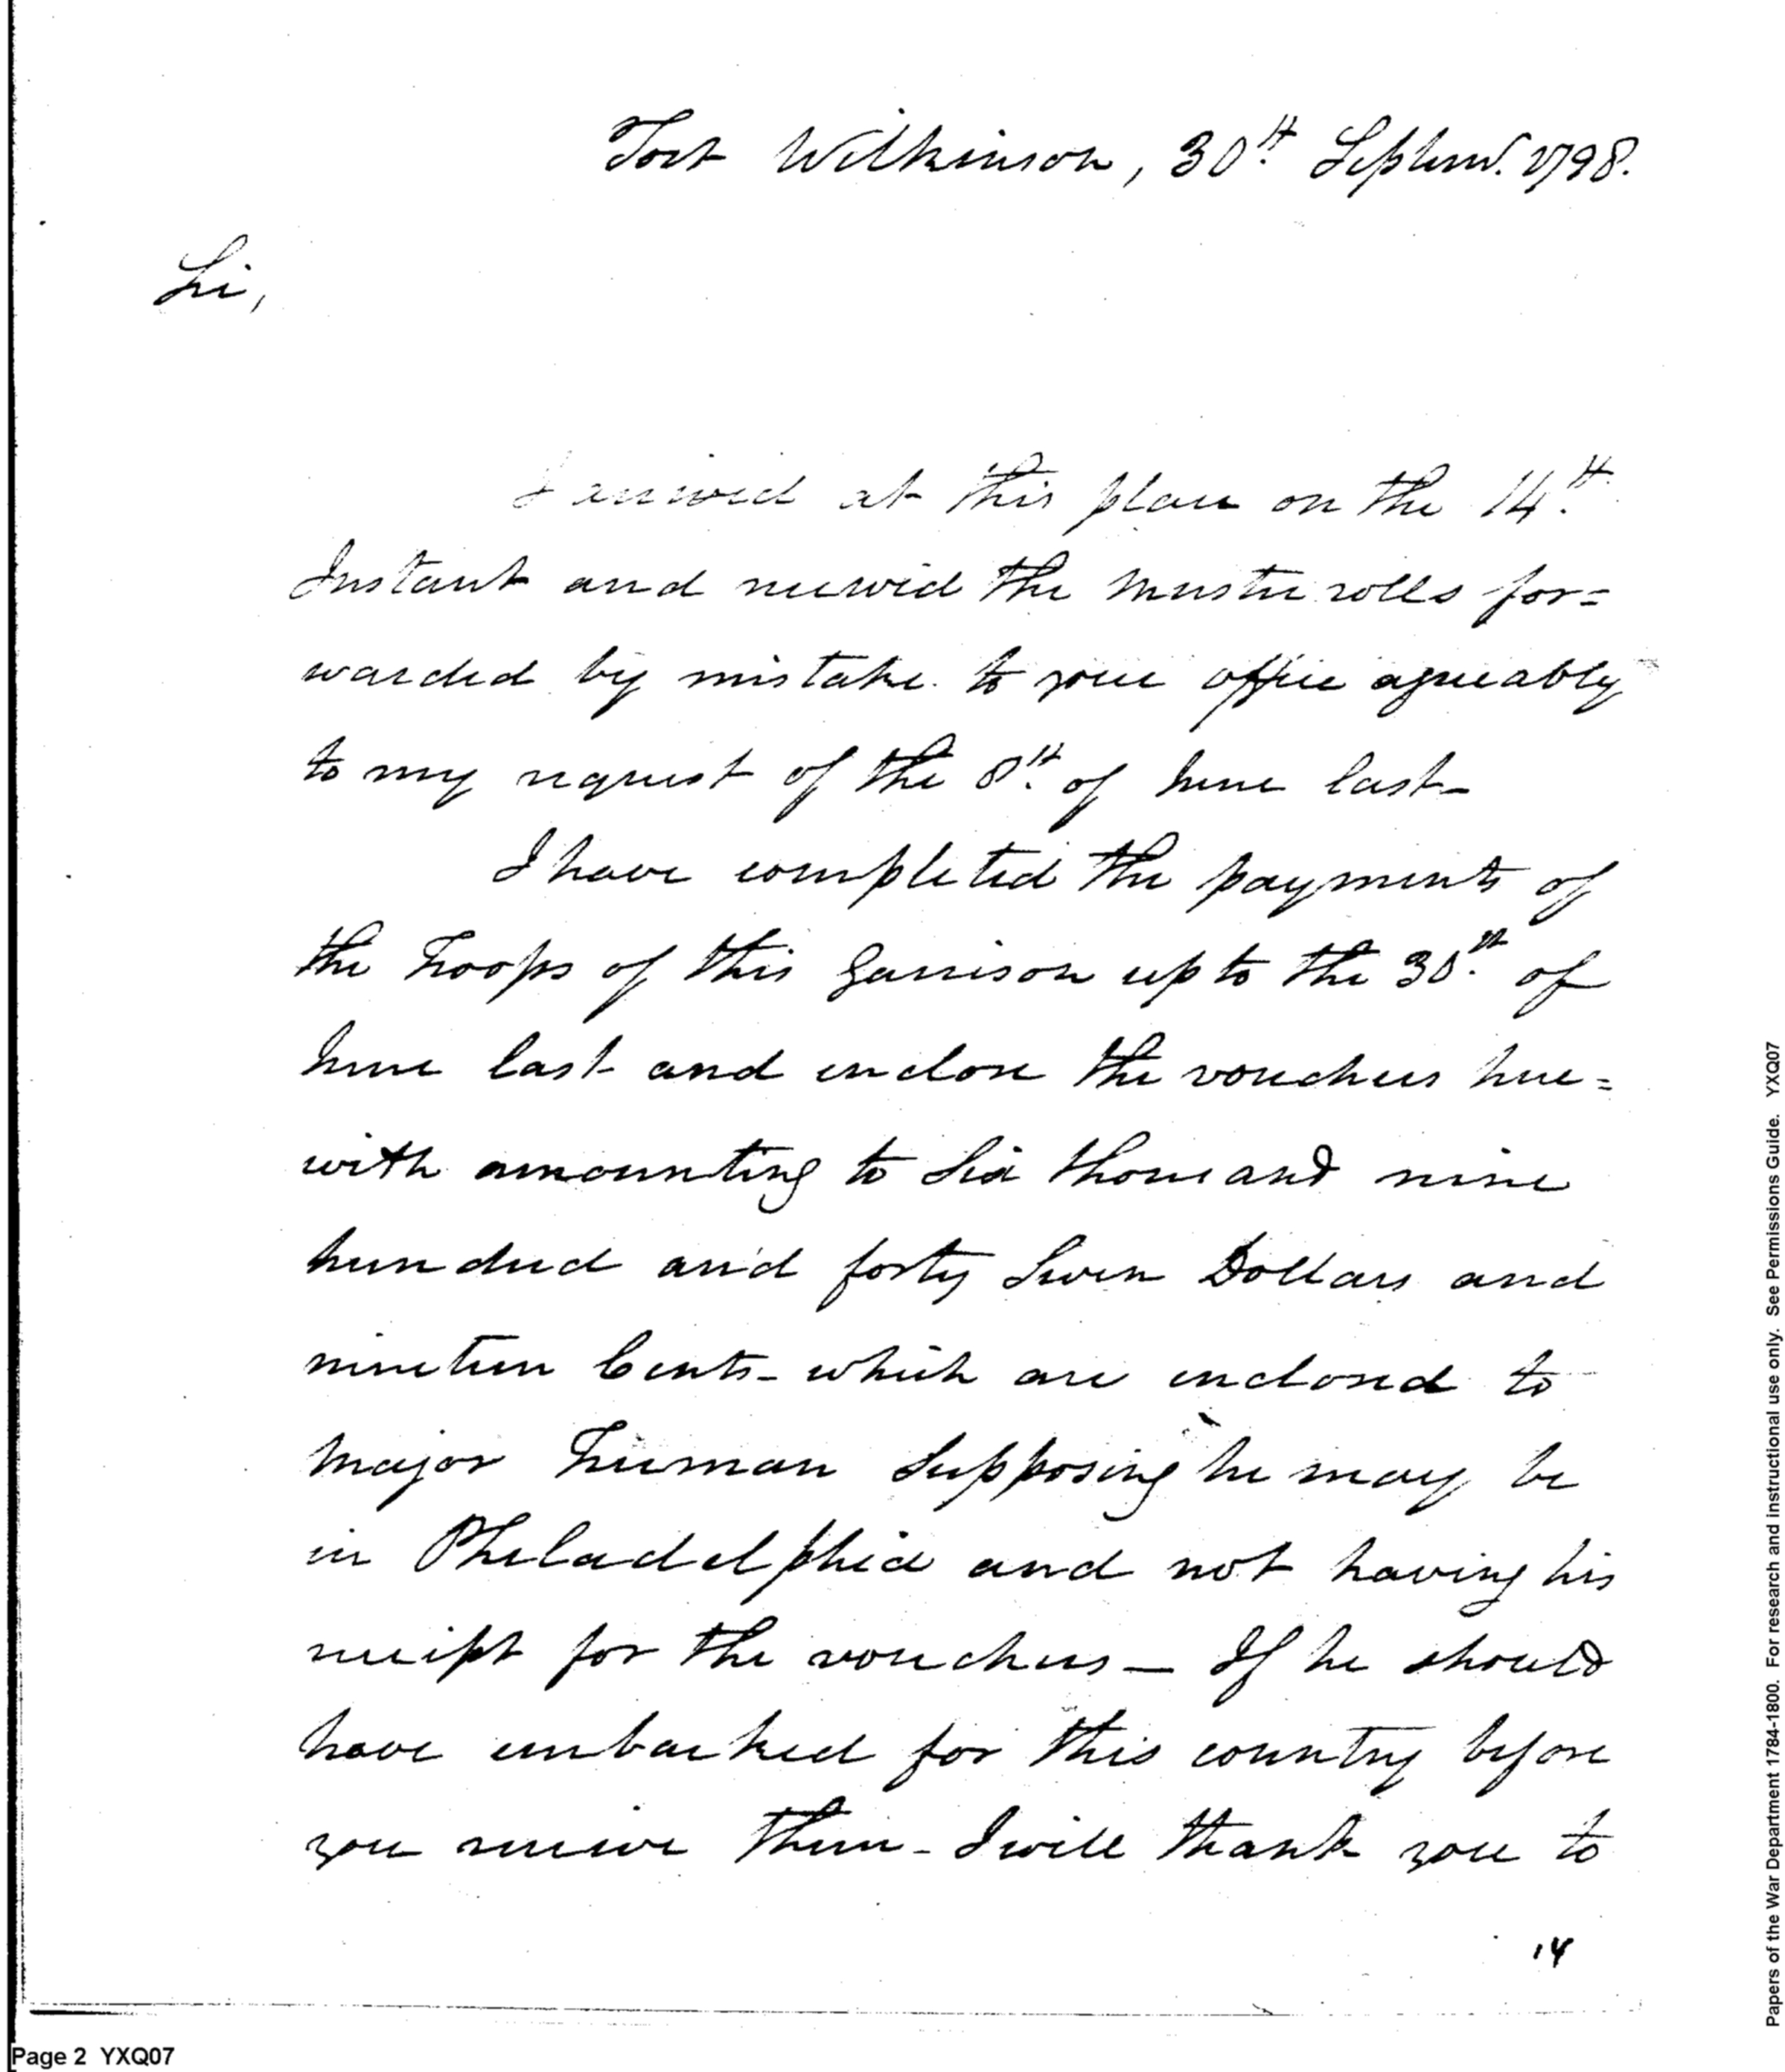 Fort Wilkinson, 30th Septem. 1798.
Sir,
I arrived at this place on the 14th
Instant and received the muster rolls for=
warded by mistake to your office agreeably
to my request of the 8th of June last-
I have completed the payments of
the Troops of this Garrison up to the 30th of
June last and enclose the vouchers here=
with amounting to Six thousand nine
hundred and forty Seven Dollars and
nineteen Cents- which are enclosed to
Major Freeman Supposing he may be
in Philadelphia and not having his
receipt for the vouchers— If he should
have embarked for this country before
you receive them- I will thank you to
14
Page 2 YXQ07
Papers of the War Department 1784-1800. For research and instructional use only. See Permissions Guide. YXQ07